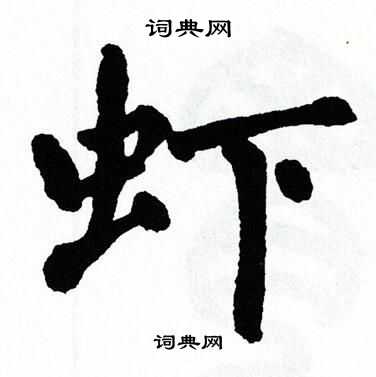 词典网
虾
词典网